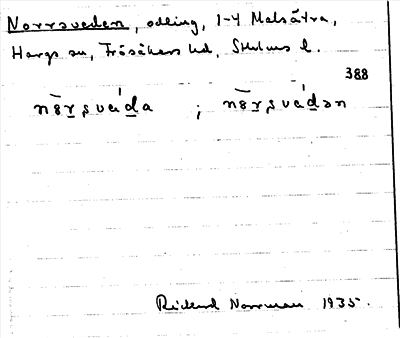 Norrsveden, odling, 1-4 Malsätra,
Hargs sn, Frösåkers hd, Sthlms l.
388
nōr̲ṣve̍d̲a ; nōr̲ṣve̍d̲ən
Rickard Norrman 1935.